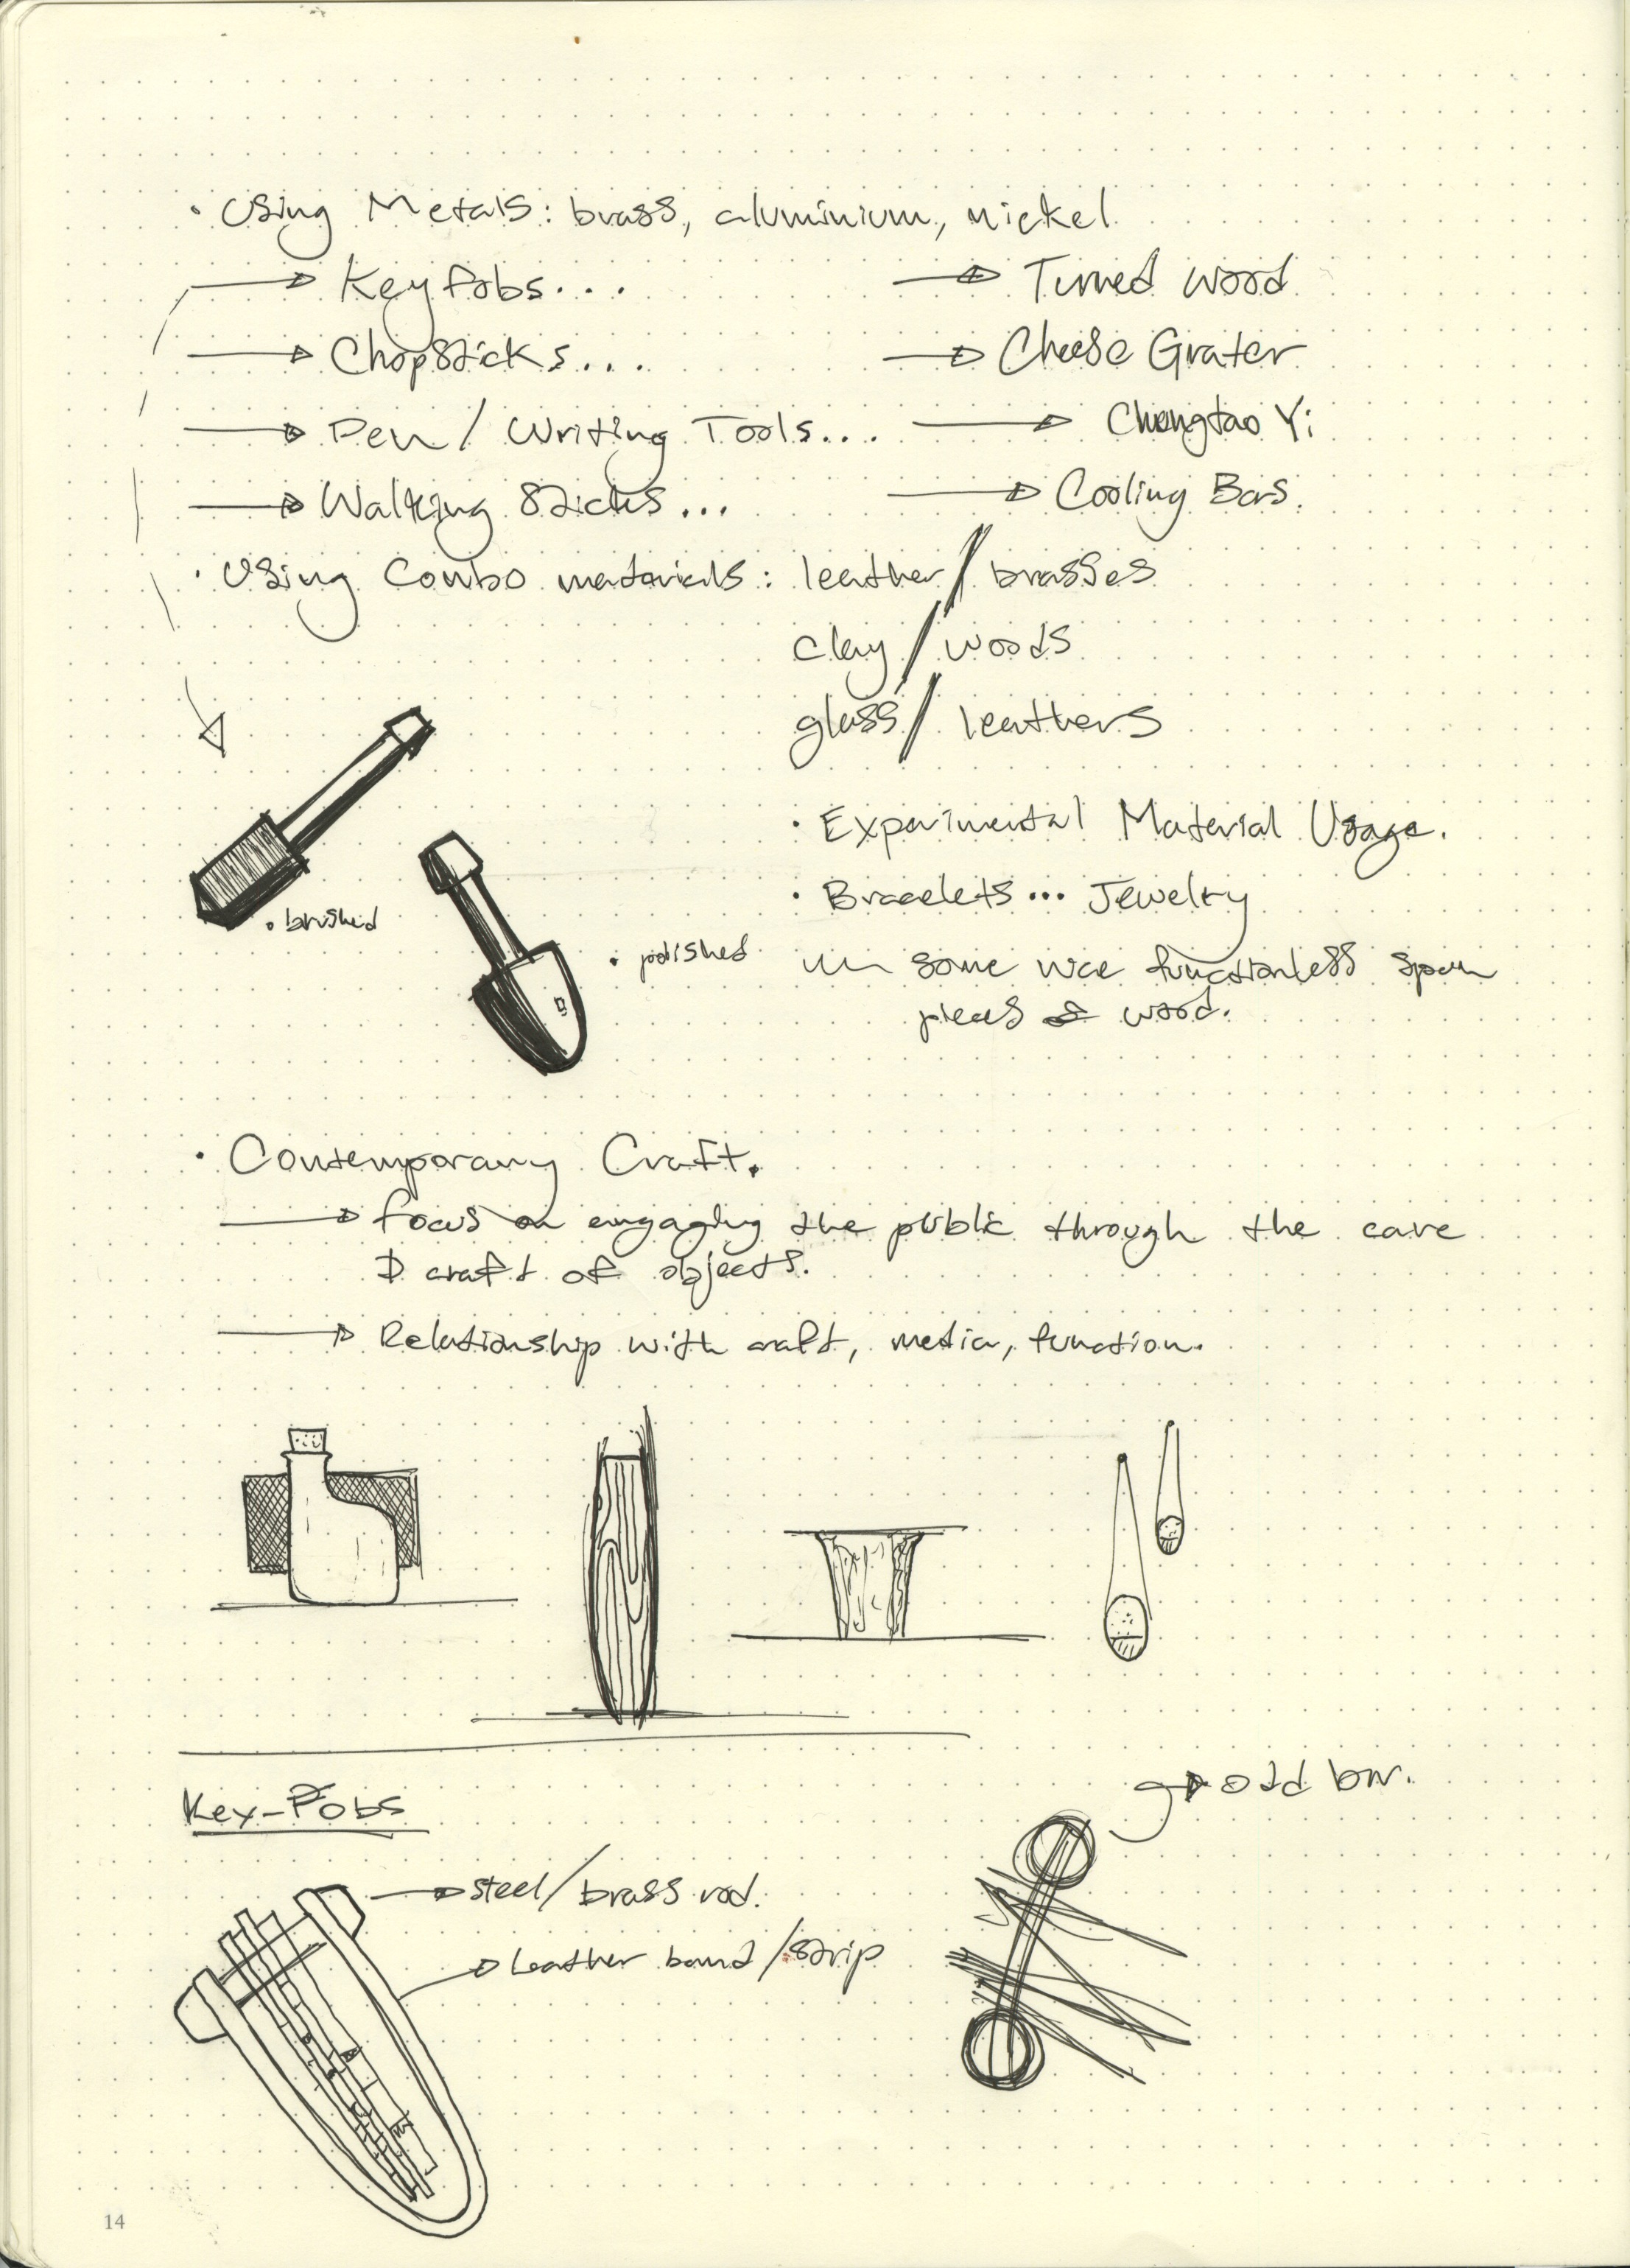 • Using Metals: brass, aluminium, nickel
→ Key fobs... → Turned wood
→ Chopsticks... → Cheese Grater
→ Pen / Writing Tools... → Chengtao Yi
→ Walking Sticks... → Cooling Bars.
• Using Combo materials: leather / brasses
clay / woods
glass / leathers
• Experimental Material Usage.
• Bracelets... Jewelry
• brushed
• polished
some nice functionless spun
pieces of wood.
• Contemporary Craft.
→ focus on engaging the public through the care
& craft of objects.
→ Relationship with craft, media, function.
Key-Fobs
→ odd bar.
→ steel / brass rod.
→ Leather band / strip
14